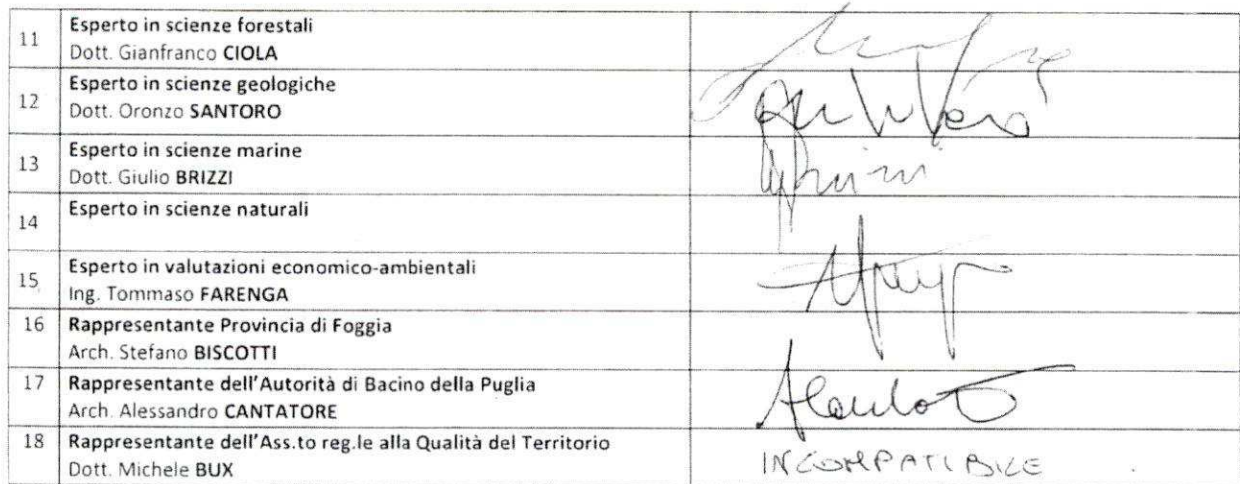 11 Esperto in scienze forestali
Dott. Gianfranco CIOLA
12 Esperto in scienze geologiche
Dott. Oronzo SANTORO
13 Esperto in scienze marine
Dott. Giulio BRIZZI
14 Esperto in scienze naturali
15 Esperto in valutazioni economico-ambientali
Ing. Tommaso FARENGA
16 Rappresentante Provincia di Foggia
Arch. Stefano BISCOTTI
17 Rappresentante dell'Autorità di Bacino della Puglia
Arch. Alessandro CANTATORE
18 Rappresentante dell'Ass.to reg.le alla Qualità del Territorio
Dott. Michele BUX
INCOMPATIBILE